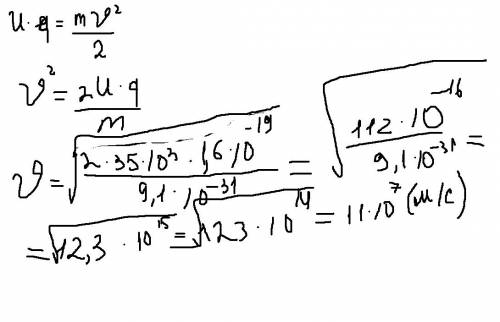 U·q = mυ²/2
υ² = 2U·q/m
υ = √(2·35·10³·1,6·10⁻¹⁹/9,1·10⁻³¹) = √(112·10⁻¹⁶/9,1·10⁻³¹) =
= √12,3·10¹⁵ = √123·10¹⁴ = 11·10⁷ (м/с)